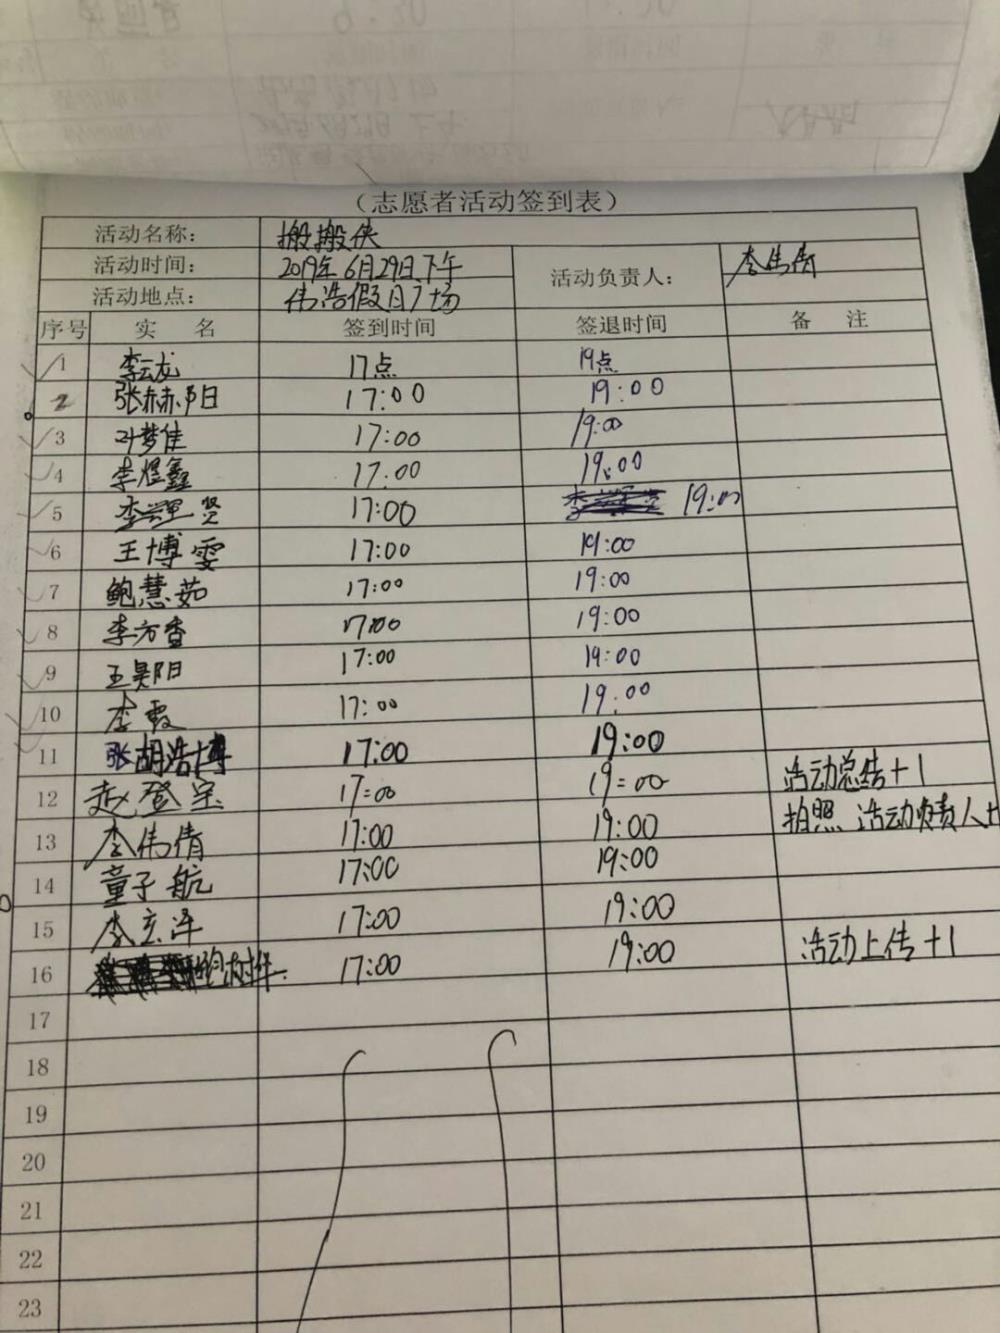 （志愿者活动签到表）
活动名称： 搬搬侠
活动时间： 2019年6月29日下午 活动负责人： 李伟倩
活动地点： 伟浩假日广场
序号 实 名 签到时间 签退时间 备 注
1 李云龙 17点 19点
2 张赫阳 17:00 19:00
3 叶梦佳 17:00 19:00
4 李煜鑫 17:00 19:00
5 17:00 19:00
6 王博雯 17:00 19:00
7 鲍慧茹 17:00 19:00
8 李方香 17:00 19:00
9 王昊阳 17:00 19:00
10 李霞 17:00 19:00
11 张胡浩博 17:00 19:00
12 赵登宝 17:00 19:00 活动总结+1
13 李伟倩 17:00 19:00 拍照 活动负责人
14 童子航 17:00 19:00
15 李玄泽 17:00 19:00
16 17:00 19:00 活动上传+1
17
18
19
20
21
22
23